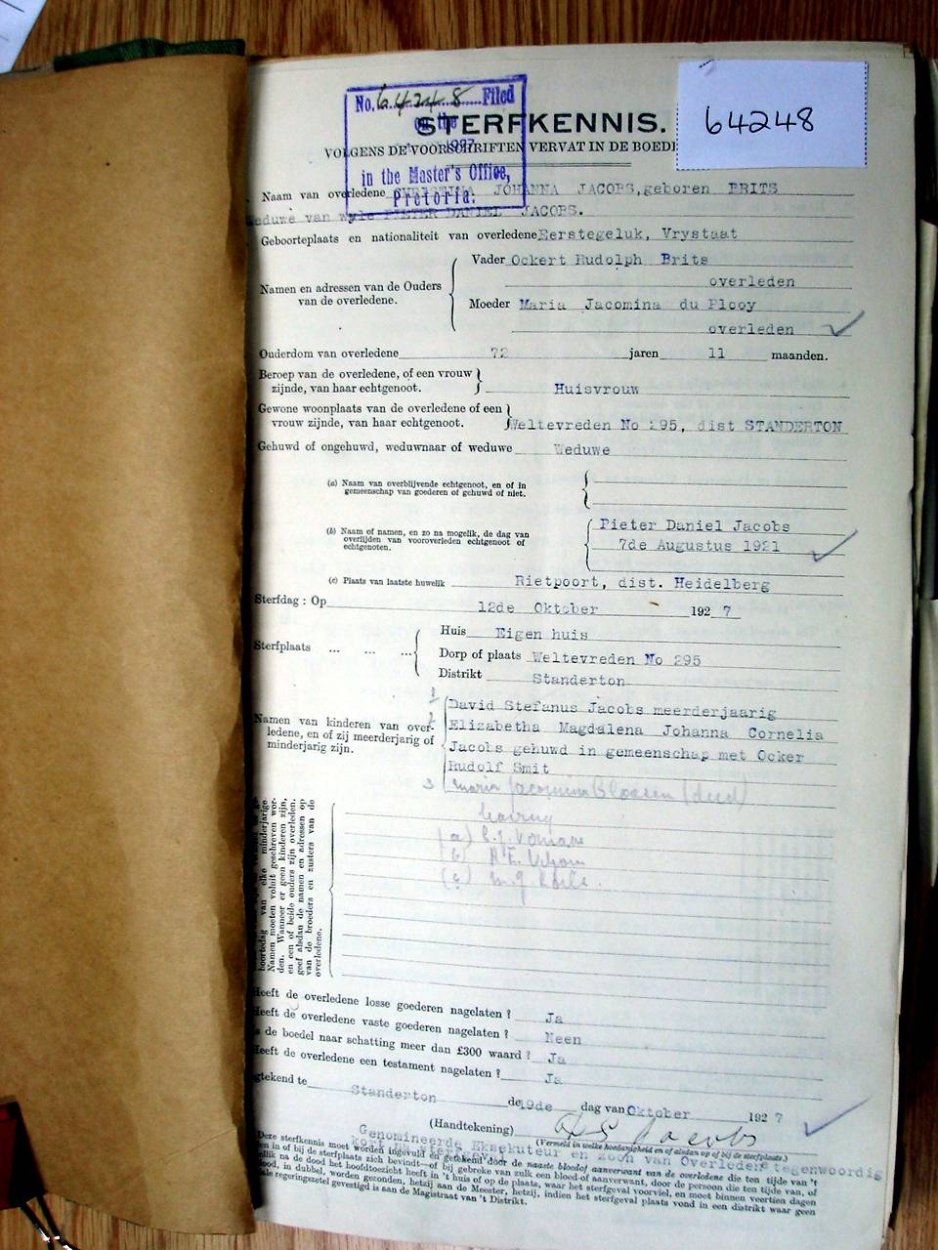 No. 64248 Filed
on the
1927
in the Master's Office,
Pretoria.
64248
STERFKENNIS.
VOLGENS DE VOORSCHRIFTEN VERVAT IN DE BOEDE
Naam van overledene JOHANNA JACOBS, geboren BRITS
Weduwe van wyle PIETER DANIEL JACOBS.
Geboorteplaats en nationaliteit van overledene Eerstegeluk, Vrystaat
Namen en adressen van de Ouders van de overledene.
Vader Ockert Rudolph Brits
overleden
Moeder Maria Jacomina du Plooy
overleden
Ouderdom van overledene 72 jaren 11 maanden.
Beroep van de overledene, of een vrouw
zijnde, van haar echtgenoot. Huisvrouw
Gewone woonplaats van de overledene of een
vrouw zijnde, van haar echtgenoot. Weltevreden No 295, dist STANDERTON
Gehuwd of ongehuwd, weduwnaar of weduwe Weduwe
(a) Naam van overblijvende echtgenoot, en of in
gemeenschap van goederen of gehuwd of niet.
(b) Naam of namen, en zo na mogelik, de dag van
overlijden van vooroverleden echtgenoot of
echtgenoten.
Pieter Daniel Jacobs
7de Augustus 1921
(c) Plaats van laatste huwelik Rietpoort, dist. Heidelberg
Sterfdag : Op 12de Oktober 192 7
Sterfplaats ... ... ...
Huis Eigen huis
Dorp of plaats Weltevreden No 295
Distrikt Standerton
Namen van kinderen van over-
ledene, en of zij meerderjarig of
minderjarig zijn.
1 David Stefanus Jacobs meerderjaarig
2 Elizabetha Magdalena Johanna Cornelia
Jacobs gehuwd in gemeenschap met Ocker
Rudolf Smit
3 Maria Jacomina (decd)
leaving
(a)
(b)
(c)
boortedag van elke minderjarige
Namen moeten voluit geschreven wor-
den. Wanneer er geen kinderen zijn,
en een of beide ouders zijn overleden,
geef alsdan de namen en adressen op
van de broeders en zusters van de
overledene.
Heeft de overledene losse goederen nagelaten ? Ja
Heeft de overledene vaste goederen nagelaten ? Neen
Is de boedel naar schatting meer dan £300 waard ? Ja
Heeft de overledene een testament nagelaten ? Ja
getekend te Standerton de 19de dag van Oktober 192 7
(Handtekening) D S Jacobs
(Vermeld in welke hoedanigheid en of alsdan op of bij de sterfplaats.)
Genomineerde Eksekuteur en Zoon van Overledene tegenwoordig
Deze sterfkennis moet worden ingevuld en getekend door de naaste bloedof aanverwant van de overledene die ten tijde van 't
en in of bij de sterfplaats zich bevindt—of bij gebreke van zulk een bloed of aanverwant, door de persoon die ten tijde van, of
llik na de dood het hoofdtoezicht heeft in 't huis of op de plaats, waar het sterfgeval voorviel, en moet binnen veertien dagen
dood, in dubbel, worden gezonden, hetzij aan de Meester, hetzij, indien het sterfgeval plaats vond in een distrikt waar geen
ale regeringszetel gevestigd is aan de Magistraat van 't Distrikt.